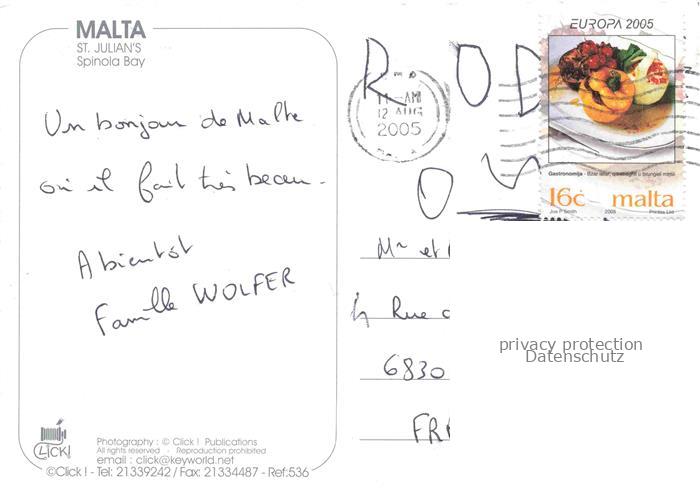 MALTA
ST. JULIAN'S
Spinola Bay
Un bonjour de Malte
où il fait très beau.
A bientôt
Famille WOLFER
Photography : © Click ! Publications
All rights reserved - Reproduction prohibited
email : click@keyworld.net
©Click ! - Tel: 21339242 / Fax: 21334487 - Ref:536
CLICK!
R O D
O S
11-AM
12 AUG
2005
EUROPA 2005
Gastronomija -
16c malta
2005
Printex Ltd
Mr et
4 Rue
6830
FR
privacy protection
Datenschutz